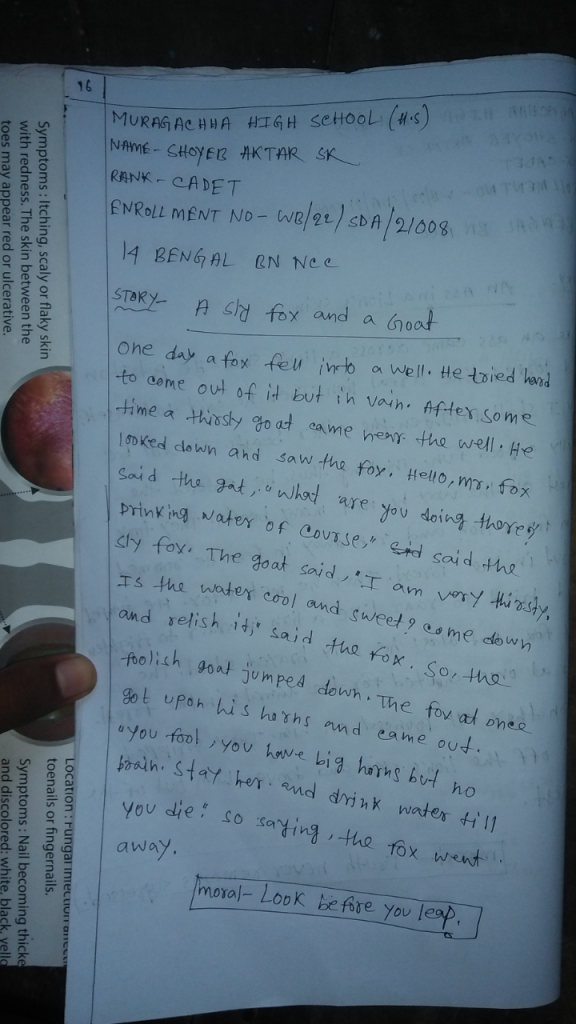 16
MURAGACHHA HIGH SCHOOL (H.S)
NAME- SHOYEB AKTAR SK
RANK- CADET
ENROLLMENT NO- WB/22/SDA/21008
14 BENGAL BN NCC
STORY- A sly fox and a Goat
One day a fox fell into a well. He tried hard
to come out of it but in vain. After some
time a thirsty goat came near the well. He
looked down and saw the fox. Hello, mr. fox
said the gat, "What are you doing there?"
Drinking water of course," said the
sly fox. The goat said, "I am very thirsty.
Is the water cool and sweet? come down
and relish it," said the fox. So, the
foolish goat jumped down. The fox at once
got upon his horns and came out.
"You fool, you have big horns but no
brain. Stay her and drink water till
you die". so saying, the fox went
away.
moral- Look before you leap.
Symptoms : Itching, scaly or flaky skin
with redness. The skin between the
toes may appear red or ulcerative.
toenails or fingernails.
Symptoms : Nail becoming thicke
and discolored: white, black, yello